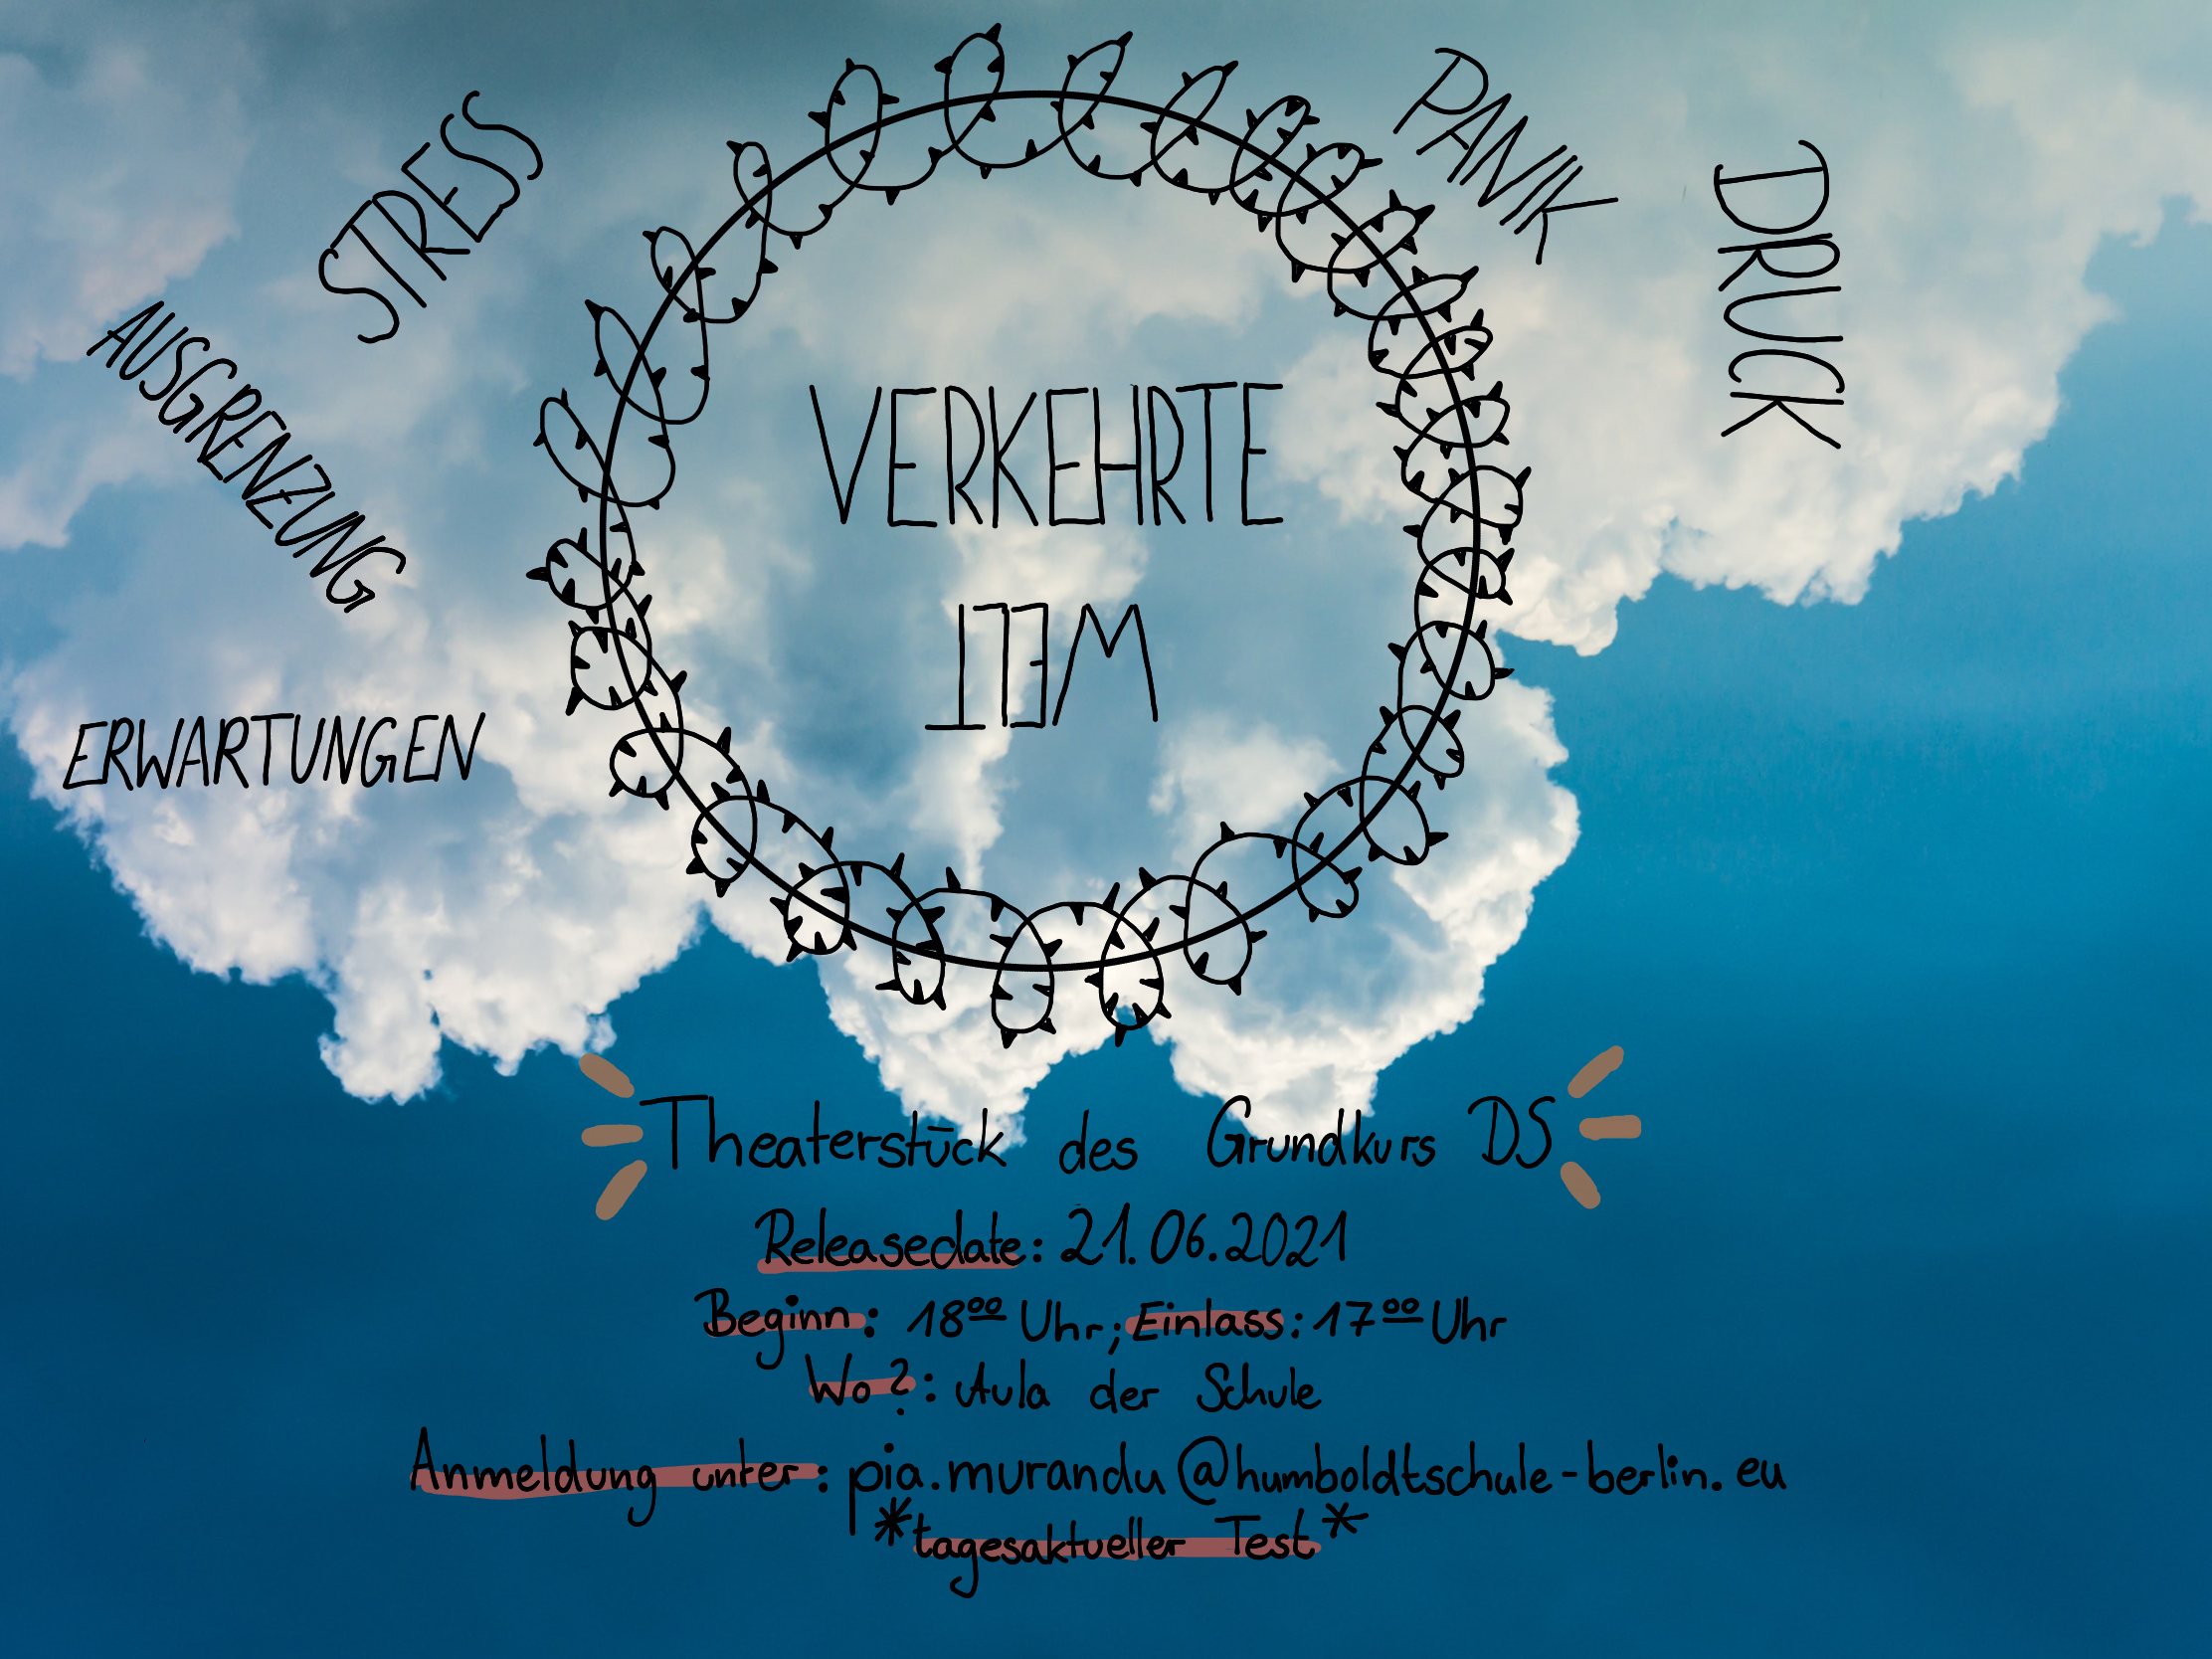 STRESS
PANIK
DRUCK
AUSGRENZUNG
VERKEHRTE
WELT
ERWARTUNGEN
Theaterstück des Grundkurs DS
Releasedate: 21.06.2021
Beginn: 18⁰⁰ Uhr; Einlass: 17⁰⁰ Uhr
Wo?: Aula der Schule
Anmeldung unter: pia.murandu@humboldtschule-berlin.eu
*tagesaktueller Test*